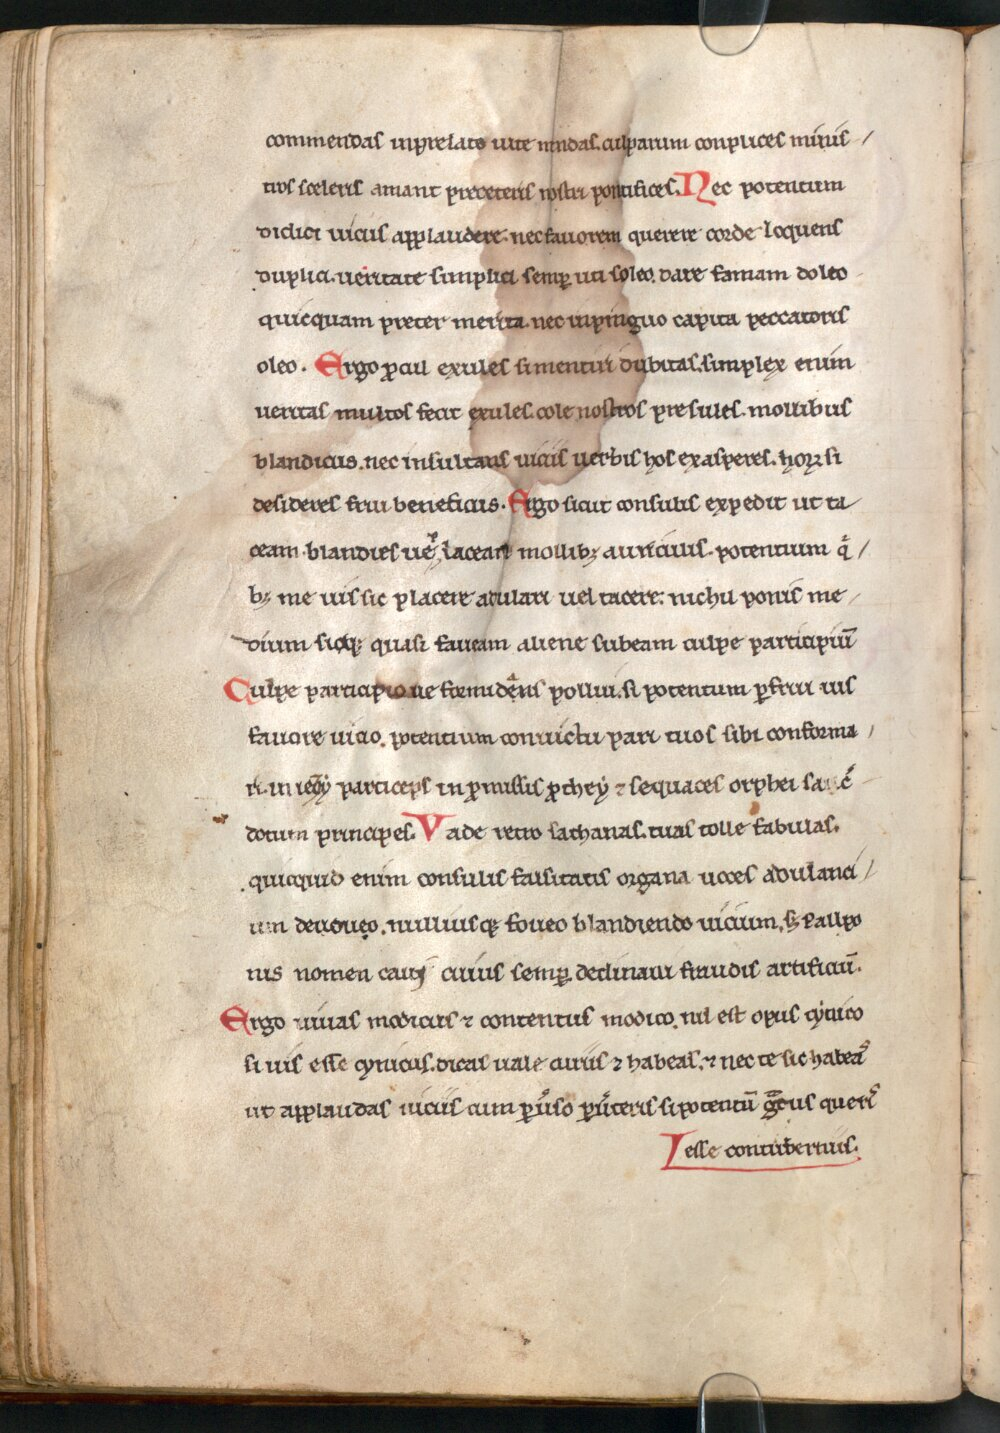 commendas inprelato uite mundas. culparum complices minis
tros sceleris amant preceteris nostri pontifices. Nec potentum
didici uiciis applaudere. nec fauorem querere corde loquens
duplici. ueritate simplici semp̱ uti soleo. dare famam doleo
quicquam preter merita. nec inpinguo capita peccatoris
oleo. Ergo ꝓcul exules si mentiri dubitas. simplex enim
ueritas multos fecit exules. cole nostros presules. mollibus
blandiciis. nec insultans uiciis uerbis hos exasperes. hoꝝ si
desideres frui beneficiis. Ergo sicut consulis expedit ut ta
ceam blandies ue placeam mollibꝫ auriculis. potentium q̊
bꝫ me uis sic placere adulari uel tacere. nichil ponis me
dium sicqꝫ quasi faueam aliene subeam culpe participiū
Culpe participio ne formidans pollui. si potentum ꝑfrui uis
fauore uicio. potentium conuictu pari tuos sibi conforma
ri. particeps in ꝓmissis ꝓthey ⁊ sequaces orphei
dotum principes. Vade retro sathanas. tuas tolle fabulas.
quicquid enim consulis falsitatis organa uoces adulanci
um deuoueo. nulliusqꝫ foueo blandiendo uicium. sꝫ pallpo
nis nomen caui cuius semp̱ declinaui fraudis artificiū.
Ergo uiuas modicus ⁊ contentus modico. nil est opus cynico
si uis esse cynicus. dicas uale curiis ⁊ habeas. ⁊ nec te sic habeas
ut applaudas uiciis cum ꝑuerso ꝑuerteris si potentū gratus queris
esse contuberniis.